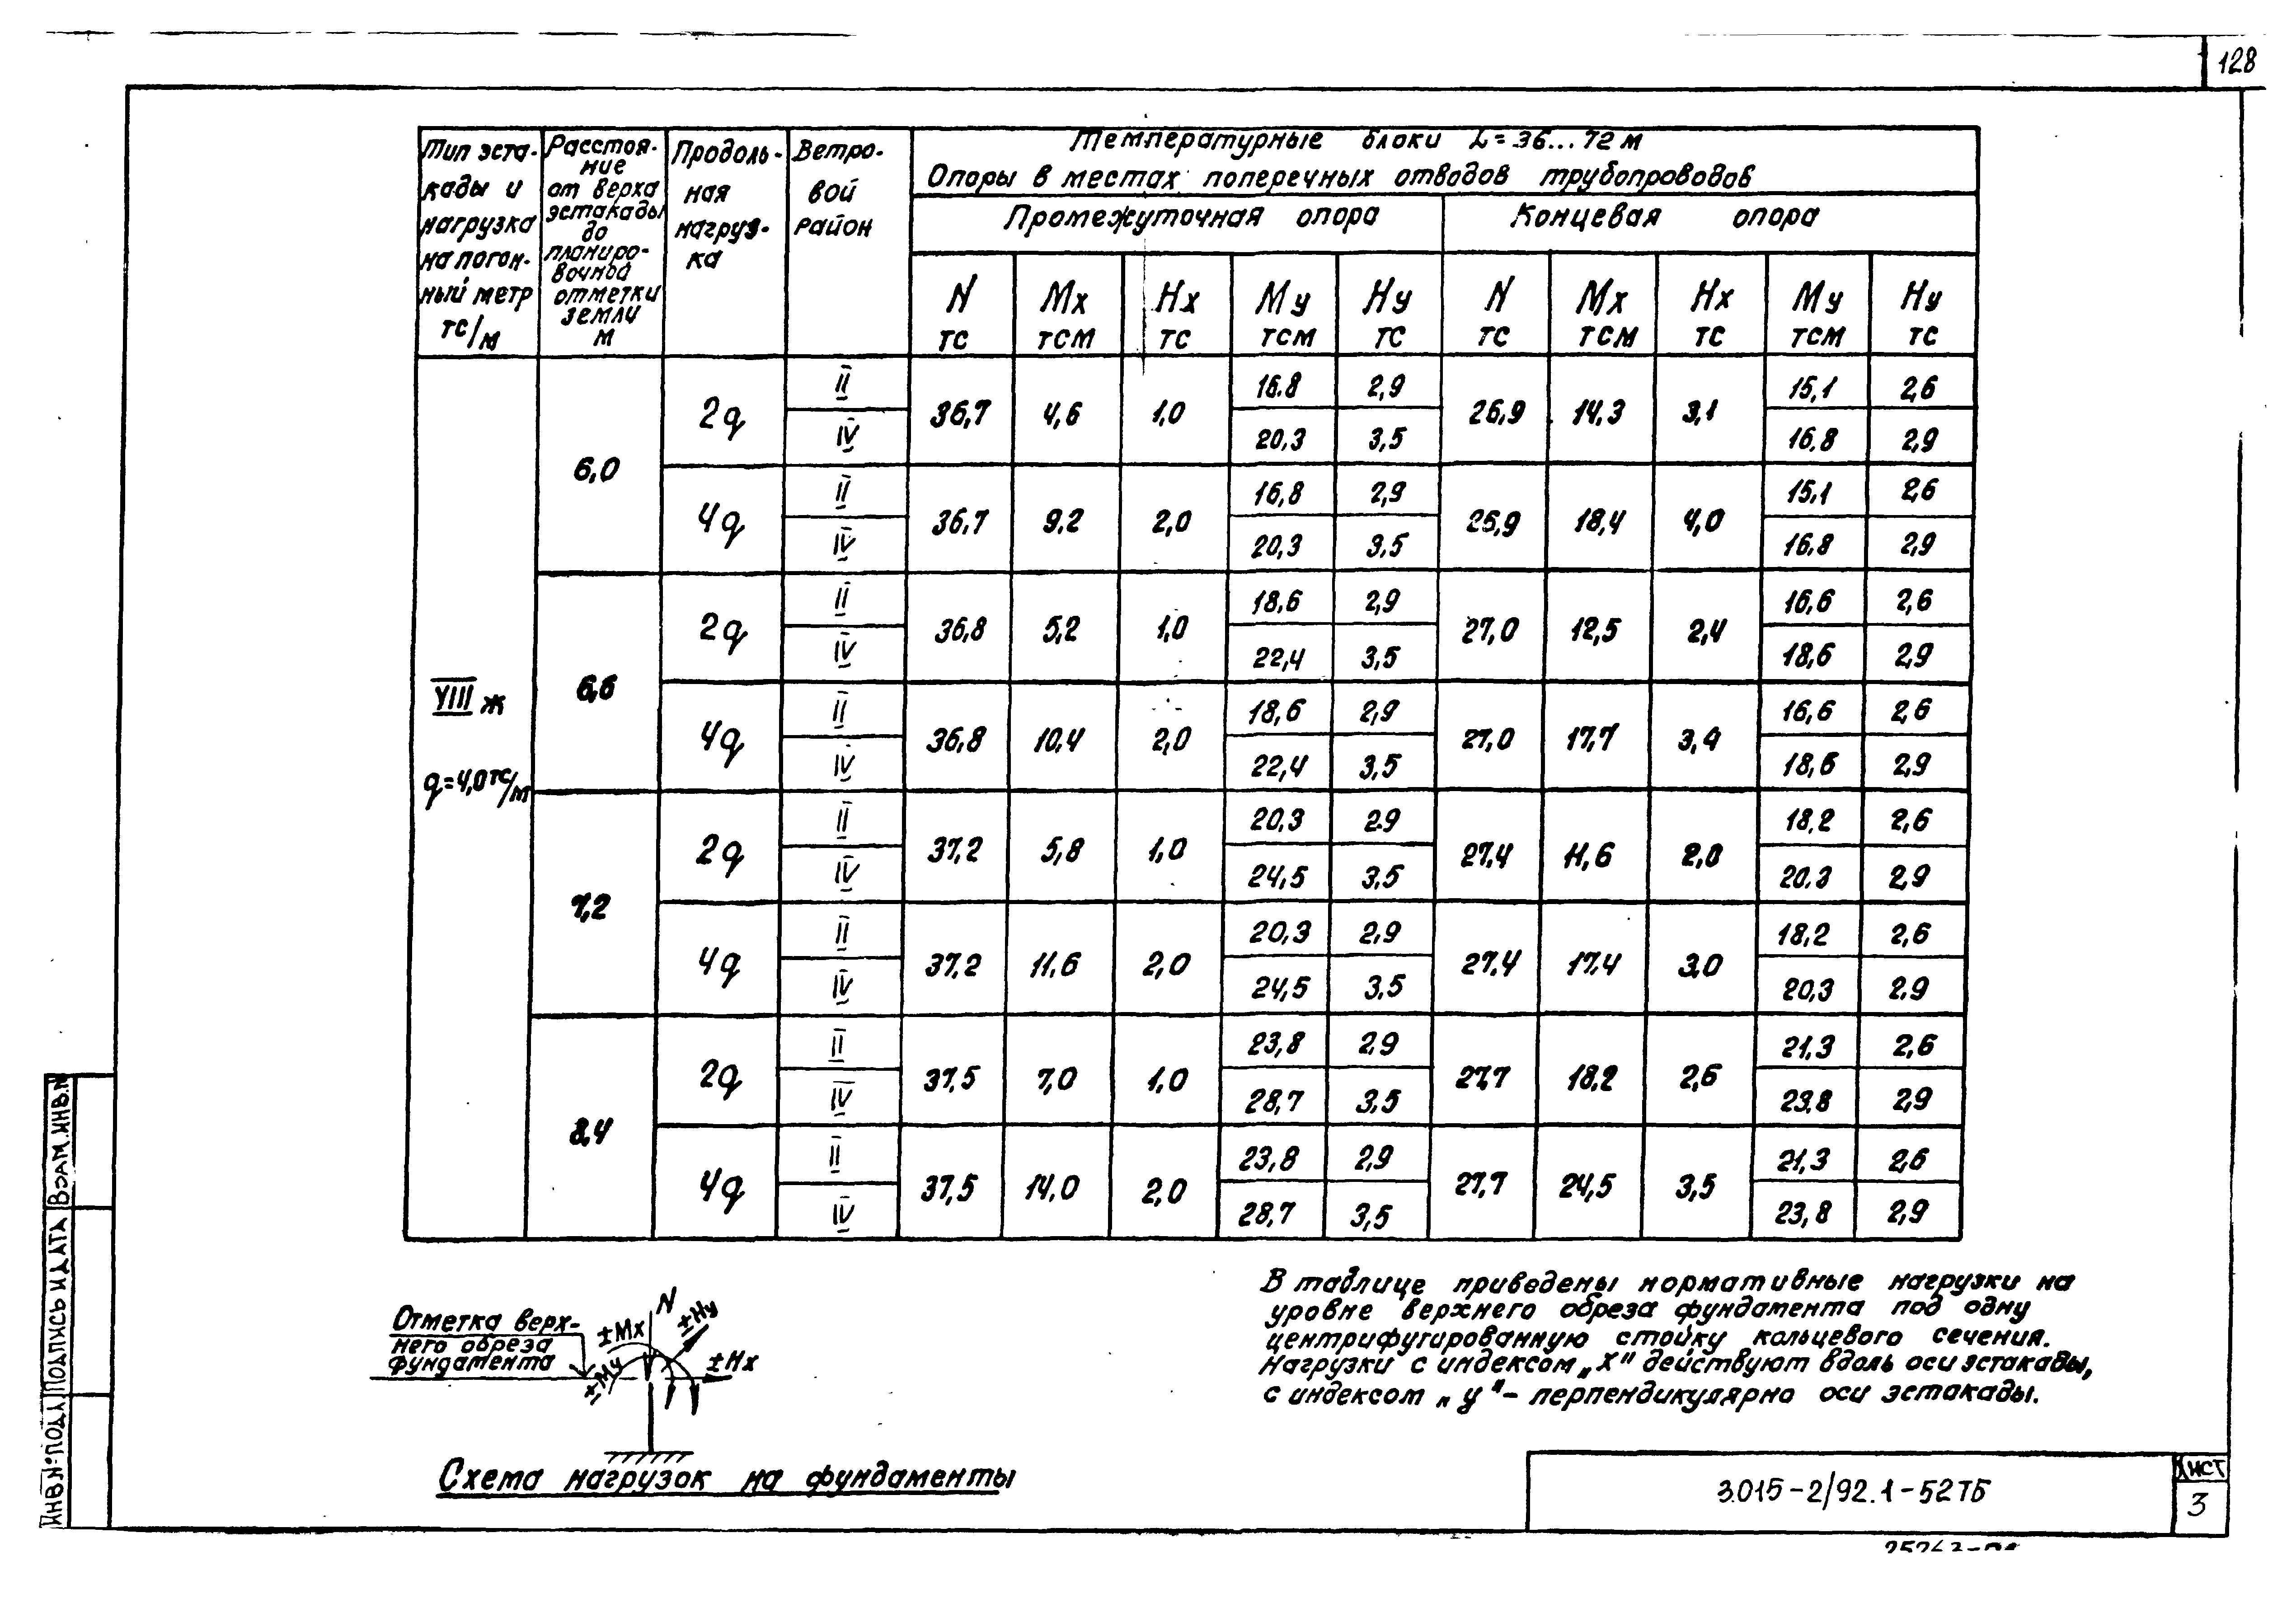 128
Тип эста-
кады и
нагрузка
на погон-
ный метр
тс/м
Расстоя-
ние
от верха
эстакады
до
планиро-
вочной
отметки
земли
м
Продоль-
ная
нагруз-
ка
Ветро-
вой
район
Температурные блоки L=36...72 м
Опоры в местах поперечных отводов трубопроводов
Промежуточная опора Концевая опора
N Mx Hx My Hy N Mx Hx My Hy
тс тсм тс тсм тс тс тсм тс тсм тс
VIII ж
q=4,0 тс/м
6,0
2q II 36,7 4,6 1,0 16.8 2,9 26,9 14,3 3,1 15,1 2,6
IV 20,3 3,5 16.8 2,9
4q II 36,7 9,2 2,0 16,8 2,9 26,9 18,4 4,0 15,1 2,6
IV 20,3 3,5 16.8 2,9
6,6
2q II 36,8 5,2 1,0 18,6 2,9 27,0 12,5 2,4 16,6 2,6
IV 22,4 3,5 18,6 2,9
4q II 36,8 10,4 2,0 18,6 2,9 27,0 17,7 3,4 16,6 2,6
IV 22,4 3,5 18,6 2,9
7,2
2q II 37,2 5,8 1,0 20,3 2.9 27,4 11,6 2,0 18,2 2,6
IV 24,5 3,5 20.3 2,9
4q II 37,2 11,6 2,0 20,3 2,9 27,4 17,4 3,0 18,2 2,6
IV 24,5 3,5 20,3 2,9
8,4
2q II 37,5 7,0 1,0 23,8 2,9 27,7 18,2 2,6 21,3 2,6
IV 28,7 3,5 23,8 2,9
4q II 37,5 14,0 2,0 23,8 2,9 27,7 24,5 3,5 21,3 2,6
IV 28,7 3,5 23,8 2,9
Отметка верх-
него обреза
фундамента
N
±Mx
±Hy
±My
±Hx
Схема нагрузок на фундаменты
В таблице приведены нормативные нагрузки на
уровне верхнего обреза фундамента под одну
центрифугированную стойку кольцевого сечения.
Нагрузки с индексом „х" действуют вдоль оси эстакады,
с индексом „у" - перпендикулярно оси эстакады.
3.015-2/92.1-52ТБ
Лист
3
Инв.№ подл.
Подпись и дата
Взам.инв.№